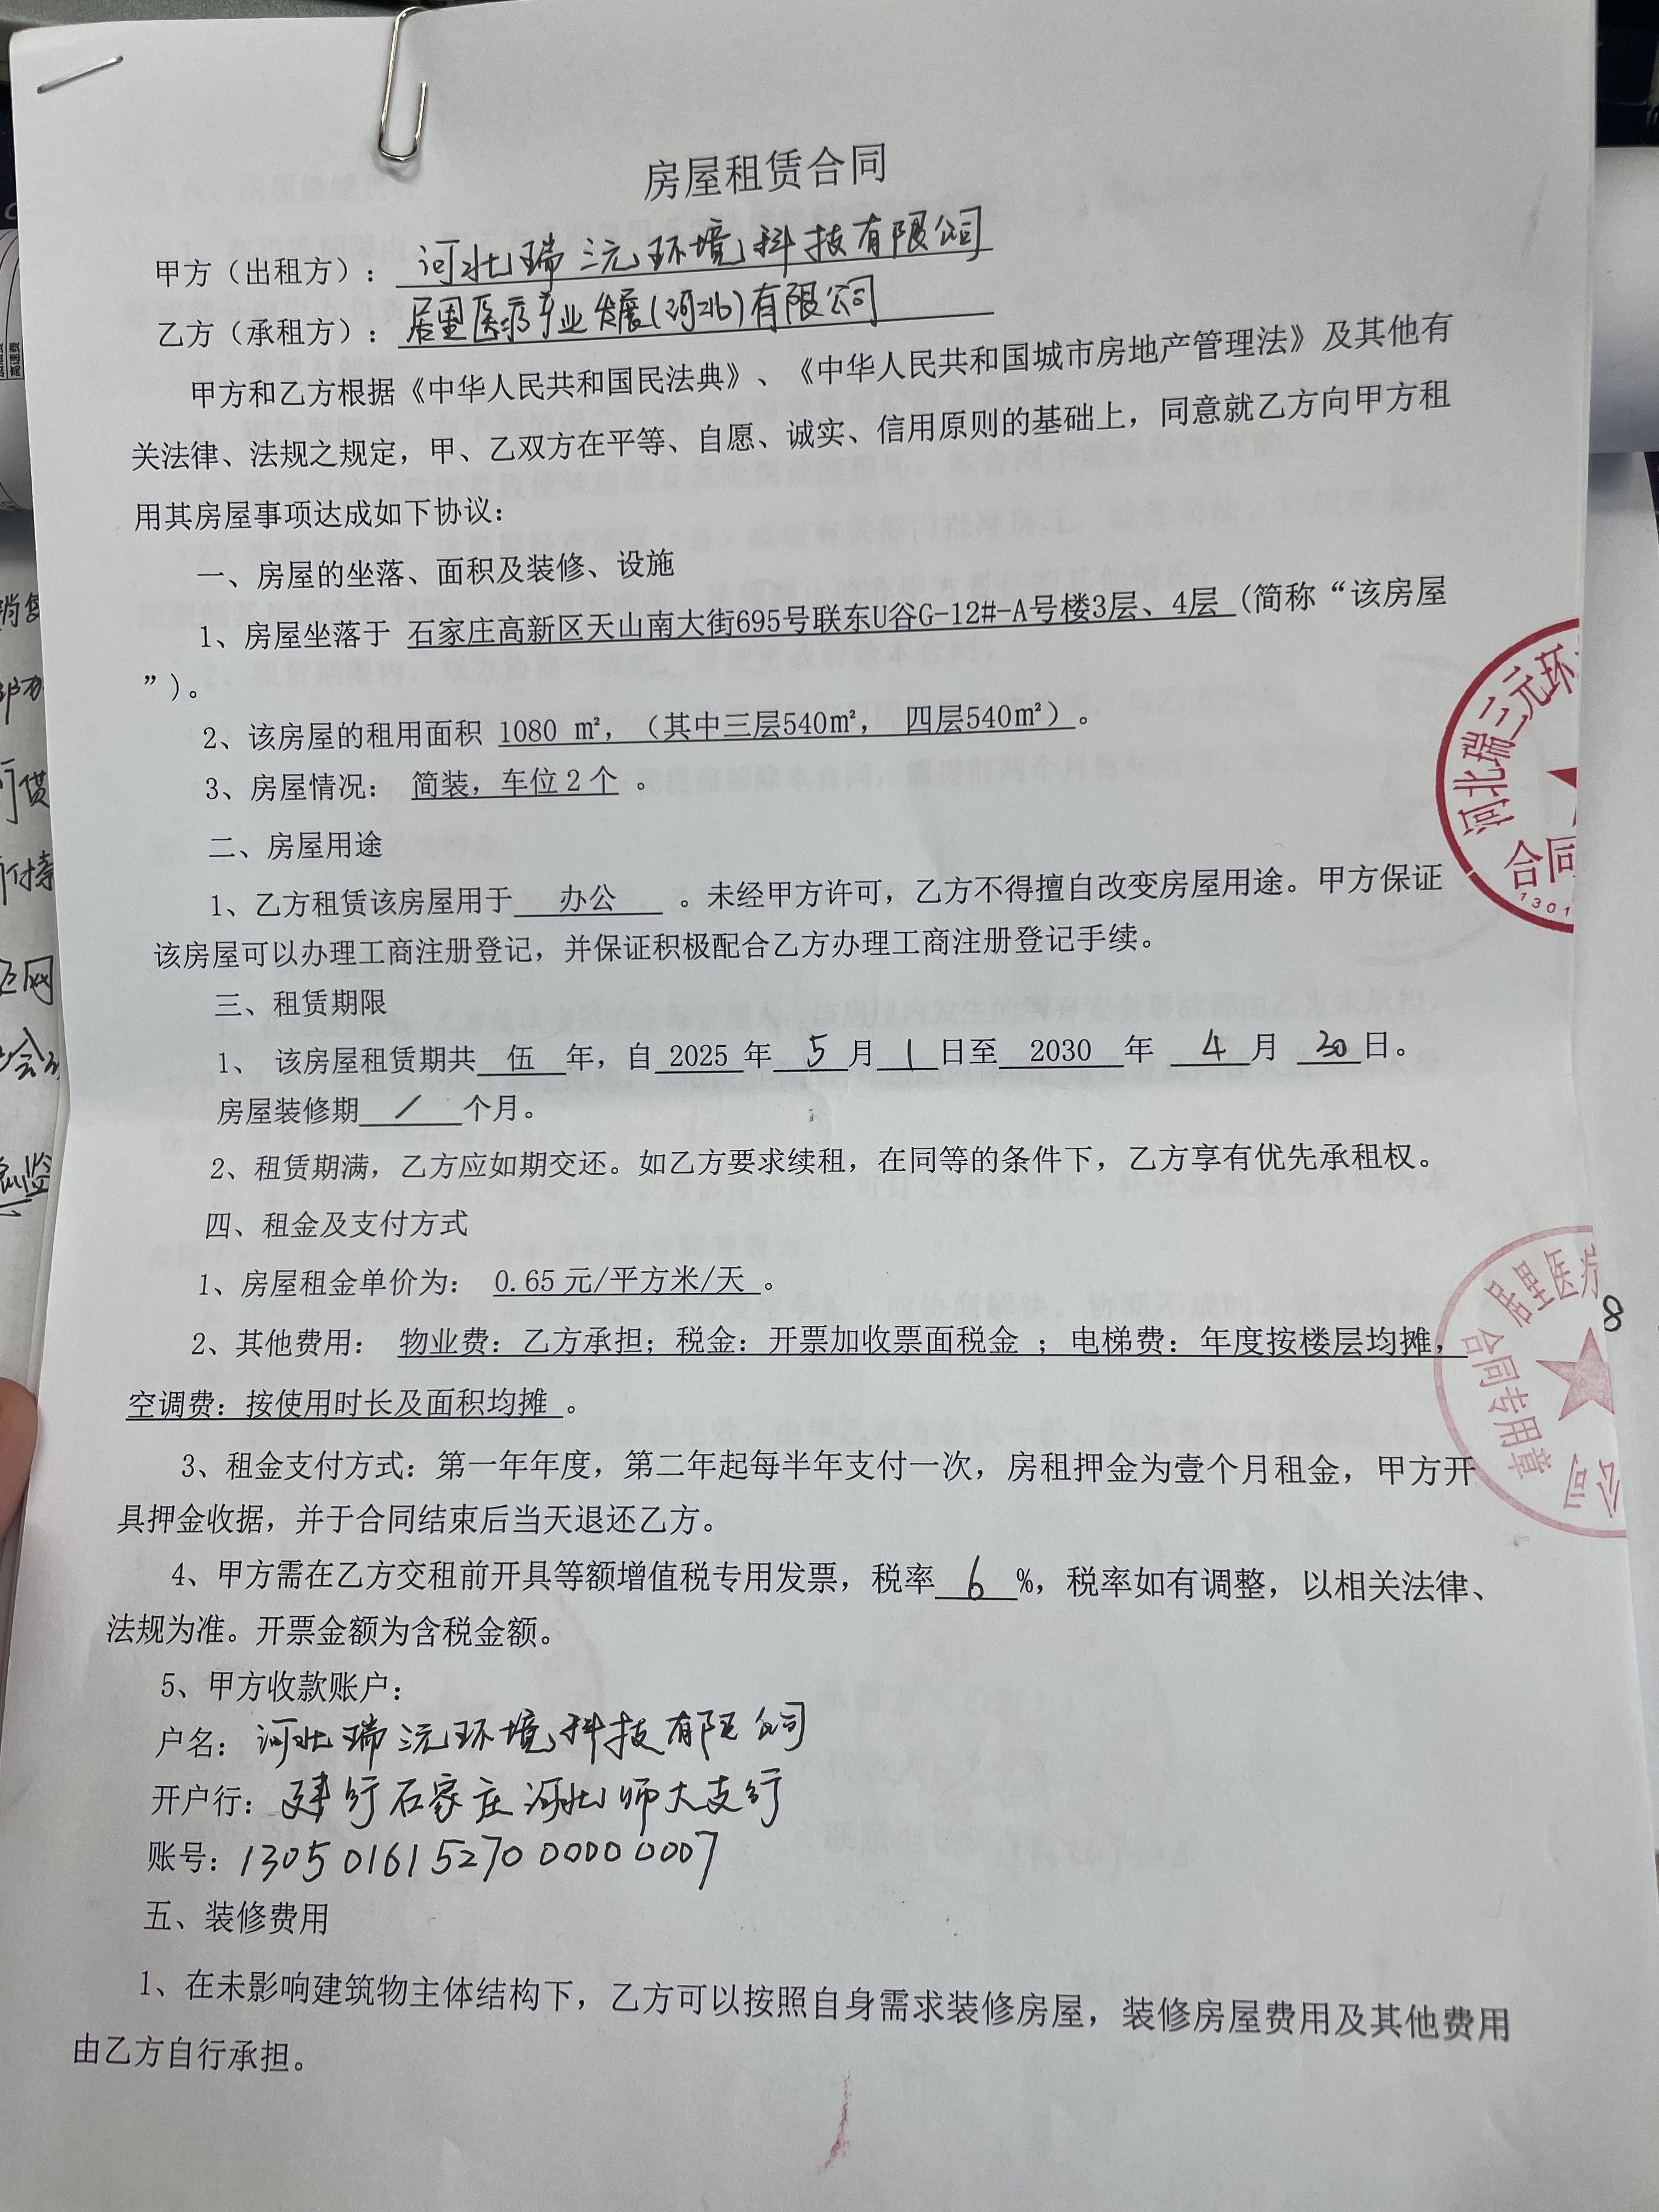 房屋租赁合同
甲方（出租方）：河北瑞三元环境科技有限公司
乙方（承租方）：居里医疗产业发展(河北)有限公司
甲方和乙方根据《中华人民共和国民法典》、《中华人民共和国城市房地产管理法》及其他有
关法律、法规之规定，甲、乙双方在平等、自愿、诚实、信用原则的基础上，同意就乙方向甲方租
用其房屋事项达成如下协议：
一、房屋的坐落、面积及装修、设施
1、房屋坐落于 石家庄高新区天山南大街695号联东U谷G-12#-A号楼3层、4层 (简称“该房屋
”)。
2、该房屋的租用面积 1080 ㎡，（其中三层540㎡， 四层540㎡）。
3、房屋情况： 简装，车位2个 。
二、房屋用途
1、乙方租赁该房屋用于 办公 。未经甲方许可，乙方不得擅自改变房屋用途。甲方保证
该房屋可以办理工商注册登记，并保证积极配合乙方办理工商注册登记手续。
三、租赁期限
1、 该房屋租赁期共 伍 年，自 2025 年 5 月 1 日至 2030 年 4 月 30 日。
房屋装修期 / 个月。
2、租赁期满，乙方应如期交还。如乙方要求续租，在同等的条件下，乙方享有优先承租权。
四、租金及支付方式
1、房屋租金单价为： 0.65元/平方米/天 。
2、其他费用： 物业费：乙方承担；税金：开票加收票面税金 ；电梯费：年度按楼层均摊，
空调费：按使用时长及面积均摊 。
3、租金支付方式：第一年年度，第二年起每半年支付一次，房租押金为壹个月租金，甲方开
具押金收据，并于合同结束后当天退还乙方。
4、甲方需在乙方交租前开具等额增值税专用发票，税率 6 %，税率如有调整，以相关法律、
法规为准。开票金额为含税金额。
5、甲方收款账户：
户名：河北瑞三元环境科技有限公司
开户行：建行石家庄河北师大支行
账号：13050161527000000007
五、装修费用
1、在未影响建筑物主体结构下，乙方可以按照自身需求装修房屋，装修房屋费用及其他费用
由乙方自行承担。
河北瑞三元环
合同
1301
居里医疗
合同专用章
公司
8